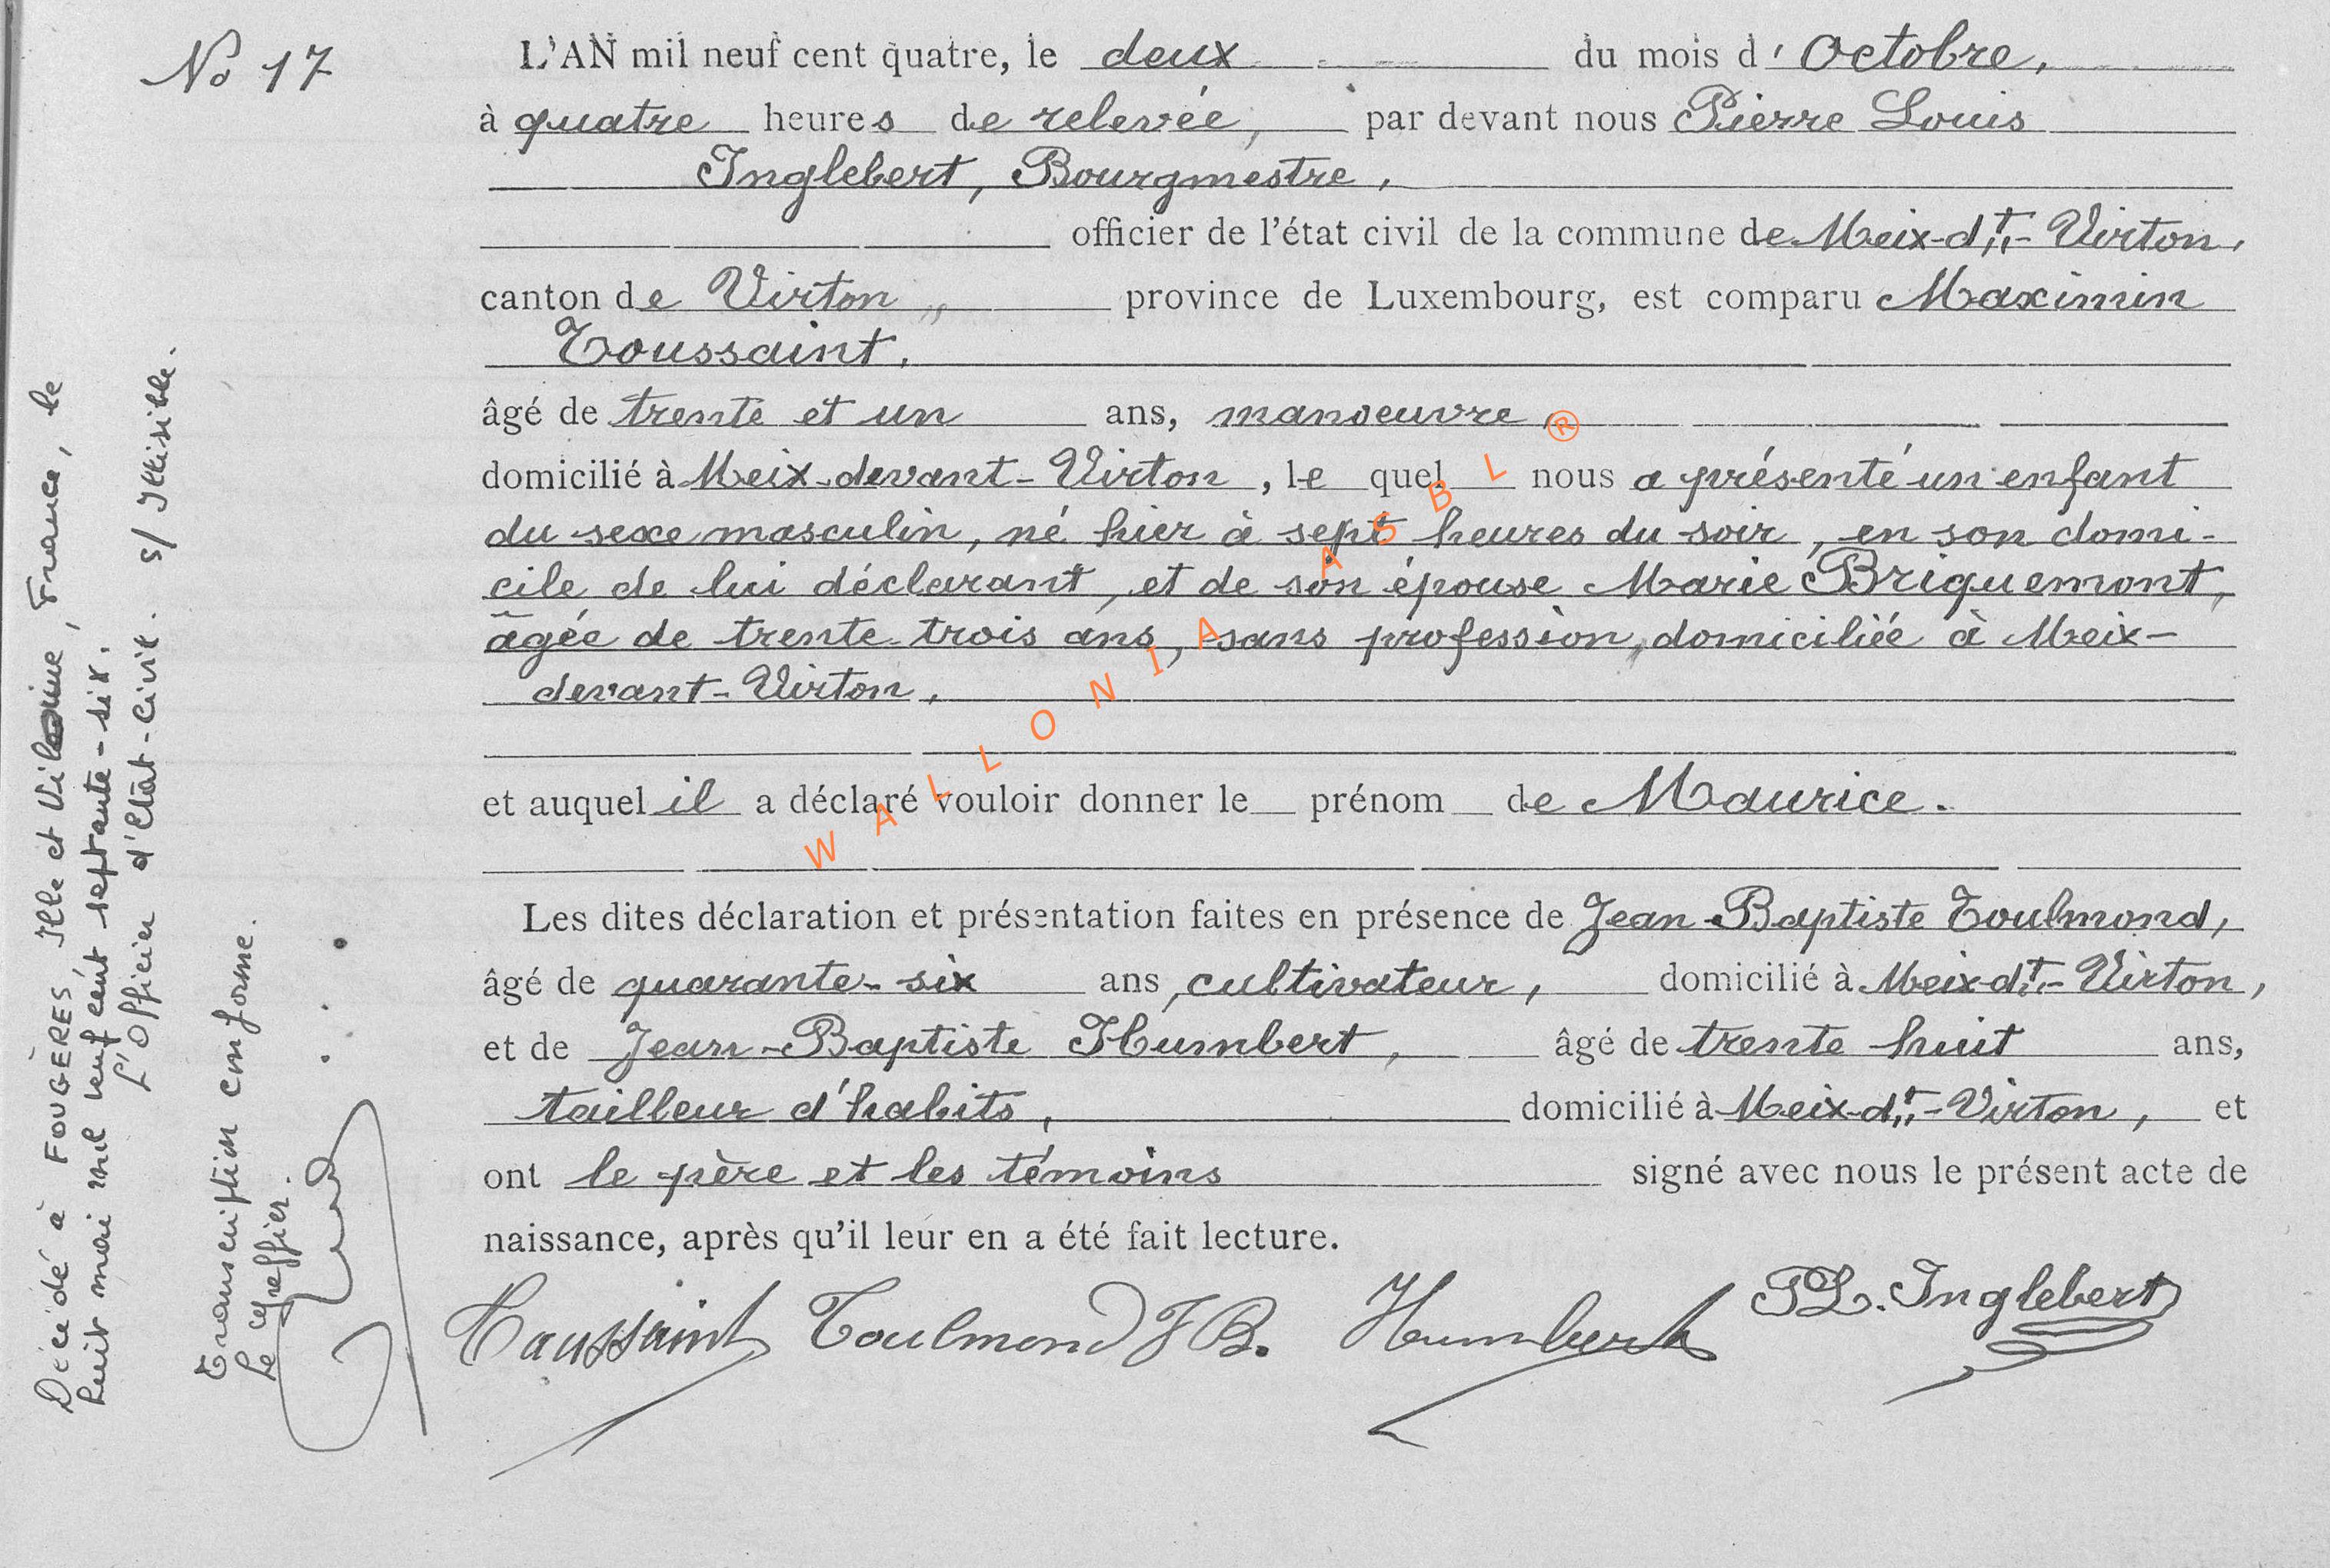 No 17
L'AN mil neuf cent quatre, le deux du mois d'Octobre,
à quatre heures de relevée, par devant nous Pierre Louis
Inglebert, Bourgmestre,
officier de l'état civil de la commune de Meix-dt-Virton,
canton de Virton, province de Luxembourg, est comparu Maximin
Toussaint,
âgé de trente et un ans, manoeuvre,
domicilié à Meix-devant-Virton, le quel nous a présenté un enfant
du sexe masculin, né hier à sept heures du soir, en son domi-
cile de lui déclarant, et de son épouse Marie Briquemont,
âgée de trente-trois ans, sans profession, domiciliée à Meix-
devant-Virton,
et auquel il a déclaré vouloir donner le prénom de Maurice.
Les dites déclaration et présentation faites en présence de Jean-Baptiste Toulmond,
âgé de quarante-six ans, cultivateur, domicilié à Meix-dt-Virton,
et de Jean-Baptiste Humbert, âgé de trente huit ans,
tailleur d'habits, domicilié à Meix-dt-Virton, et
ont le père et les témoins signé avec nous le présent acte de
naissance, après qu'il leur en a été fait lecture.
Toussaint Toulmond JB. Humbert PL. Inglebert
Décédé à FOUGÈRES Ille et Vilaine, France, le
huit mai mil neuf cent septante-six.
L'Officier d'Etat-Civil. s/ Illisible.
Transcription conforme.
Le Greffier.
WALLONIA ASBL ®